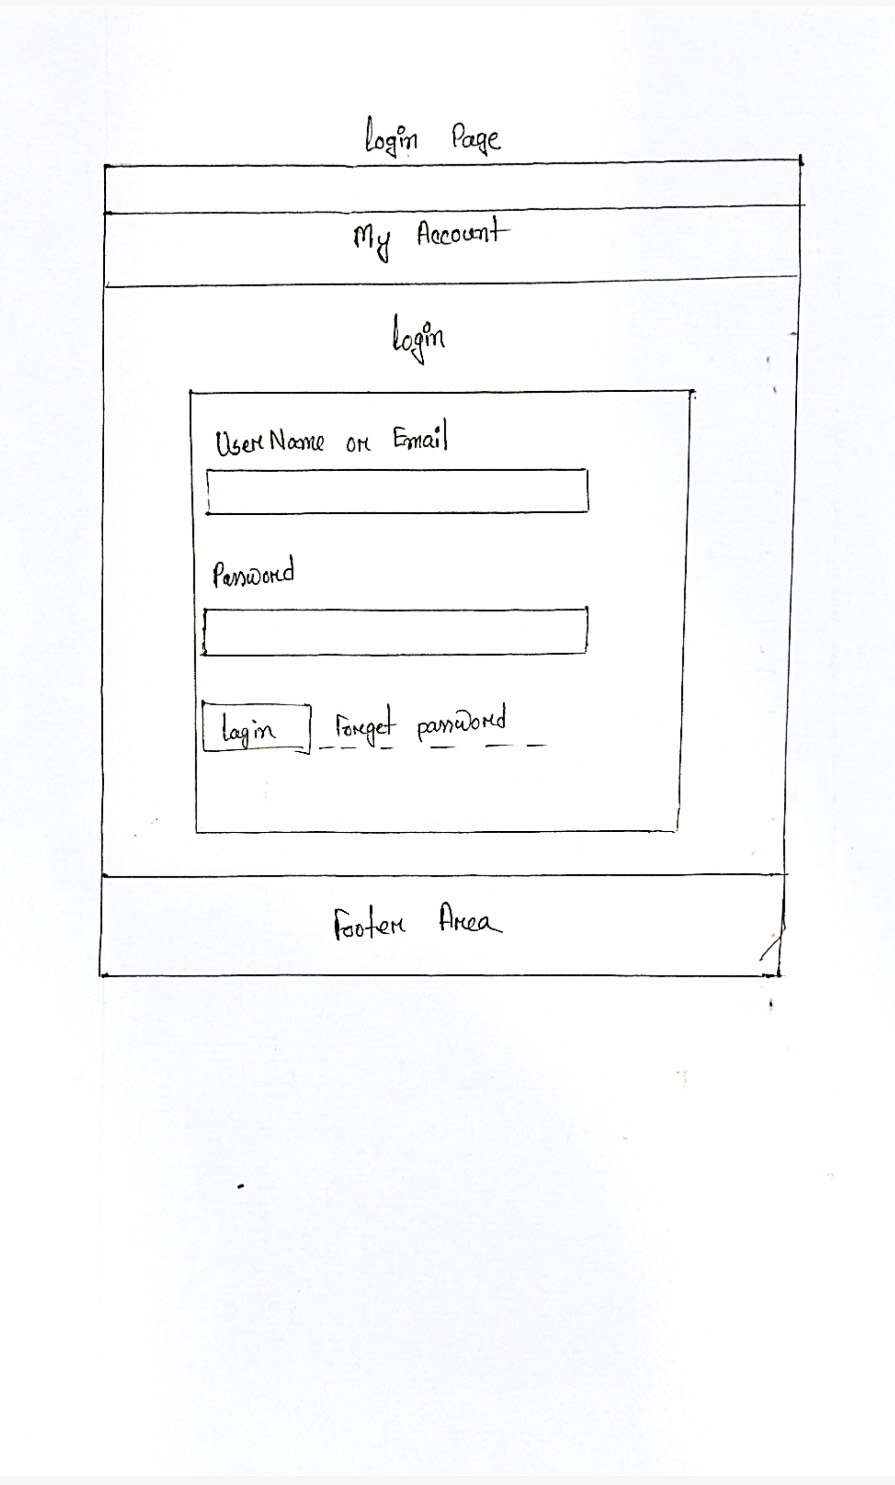 Login Page
My Account
Login
UserName or Email
Password
Login Forget password
Footer Area